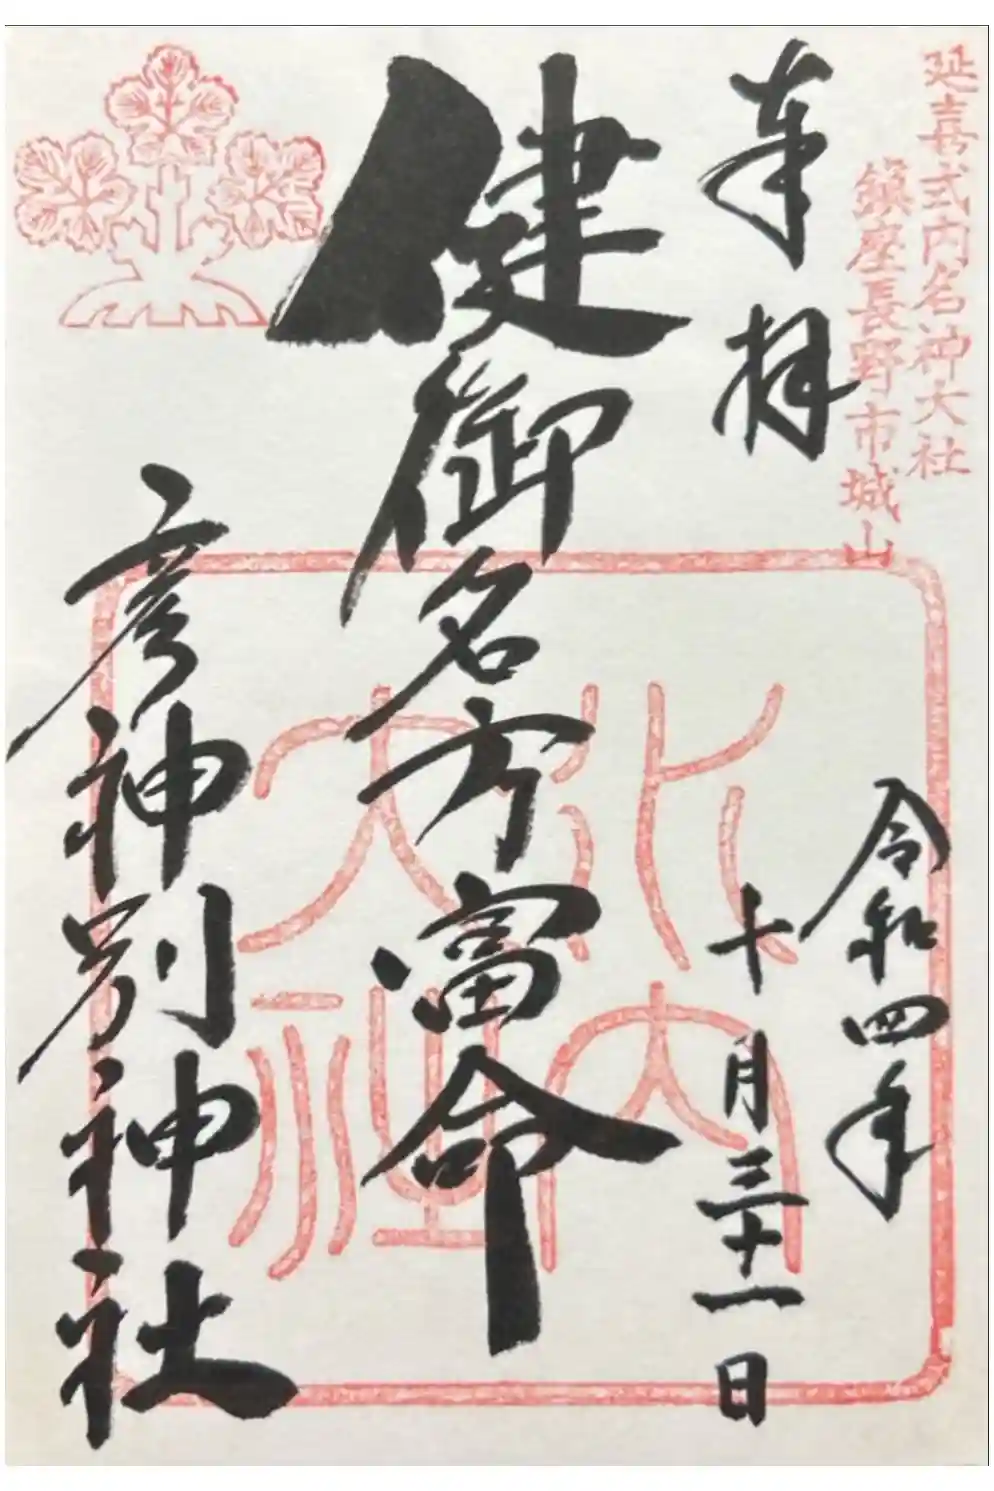 延喜式内名神大社
鎮座長野市城山
奉拝
令和四年
十月三十一日
健御名方富命
彦神別神社
水内大社